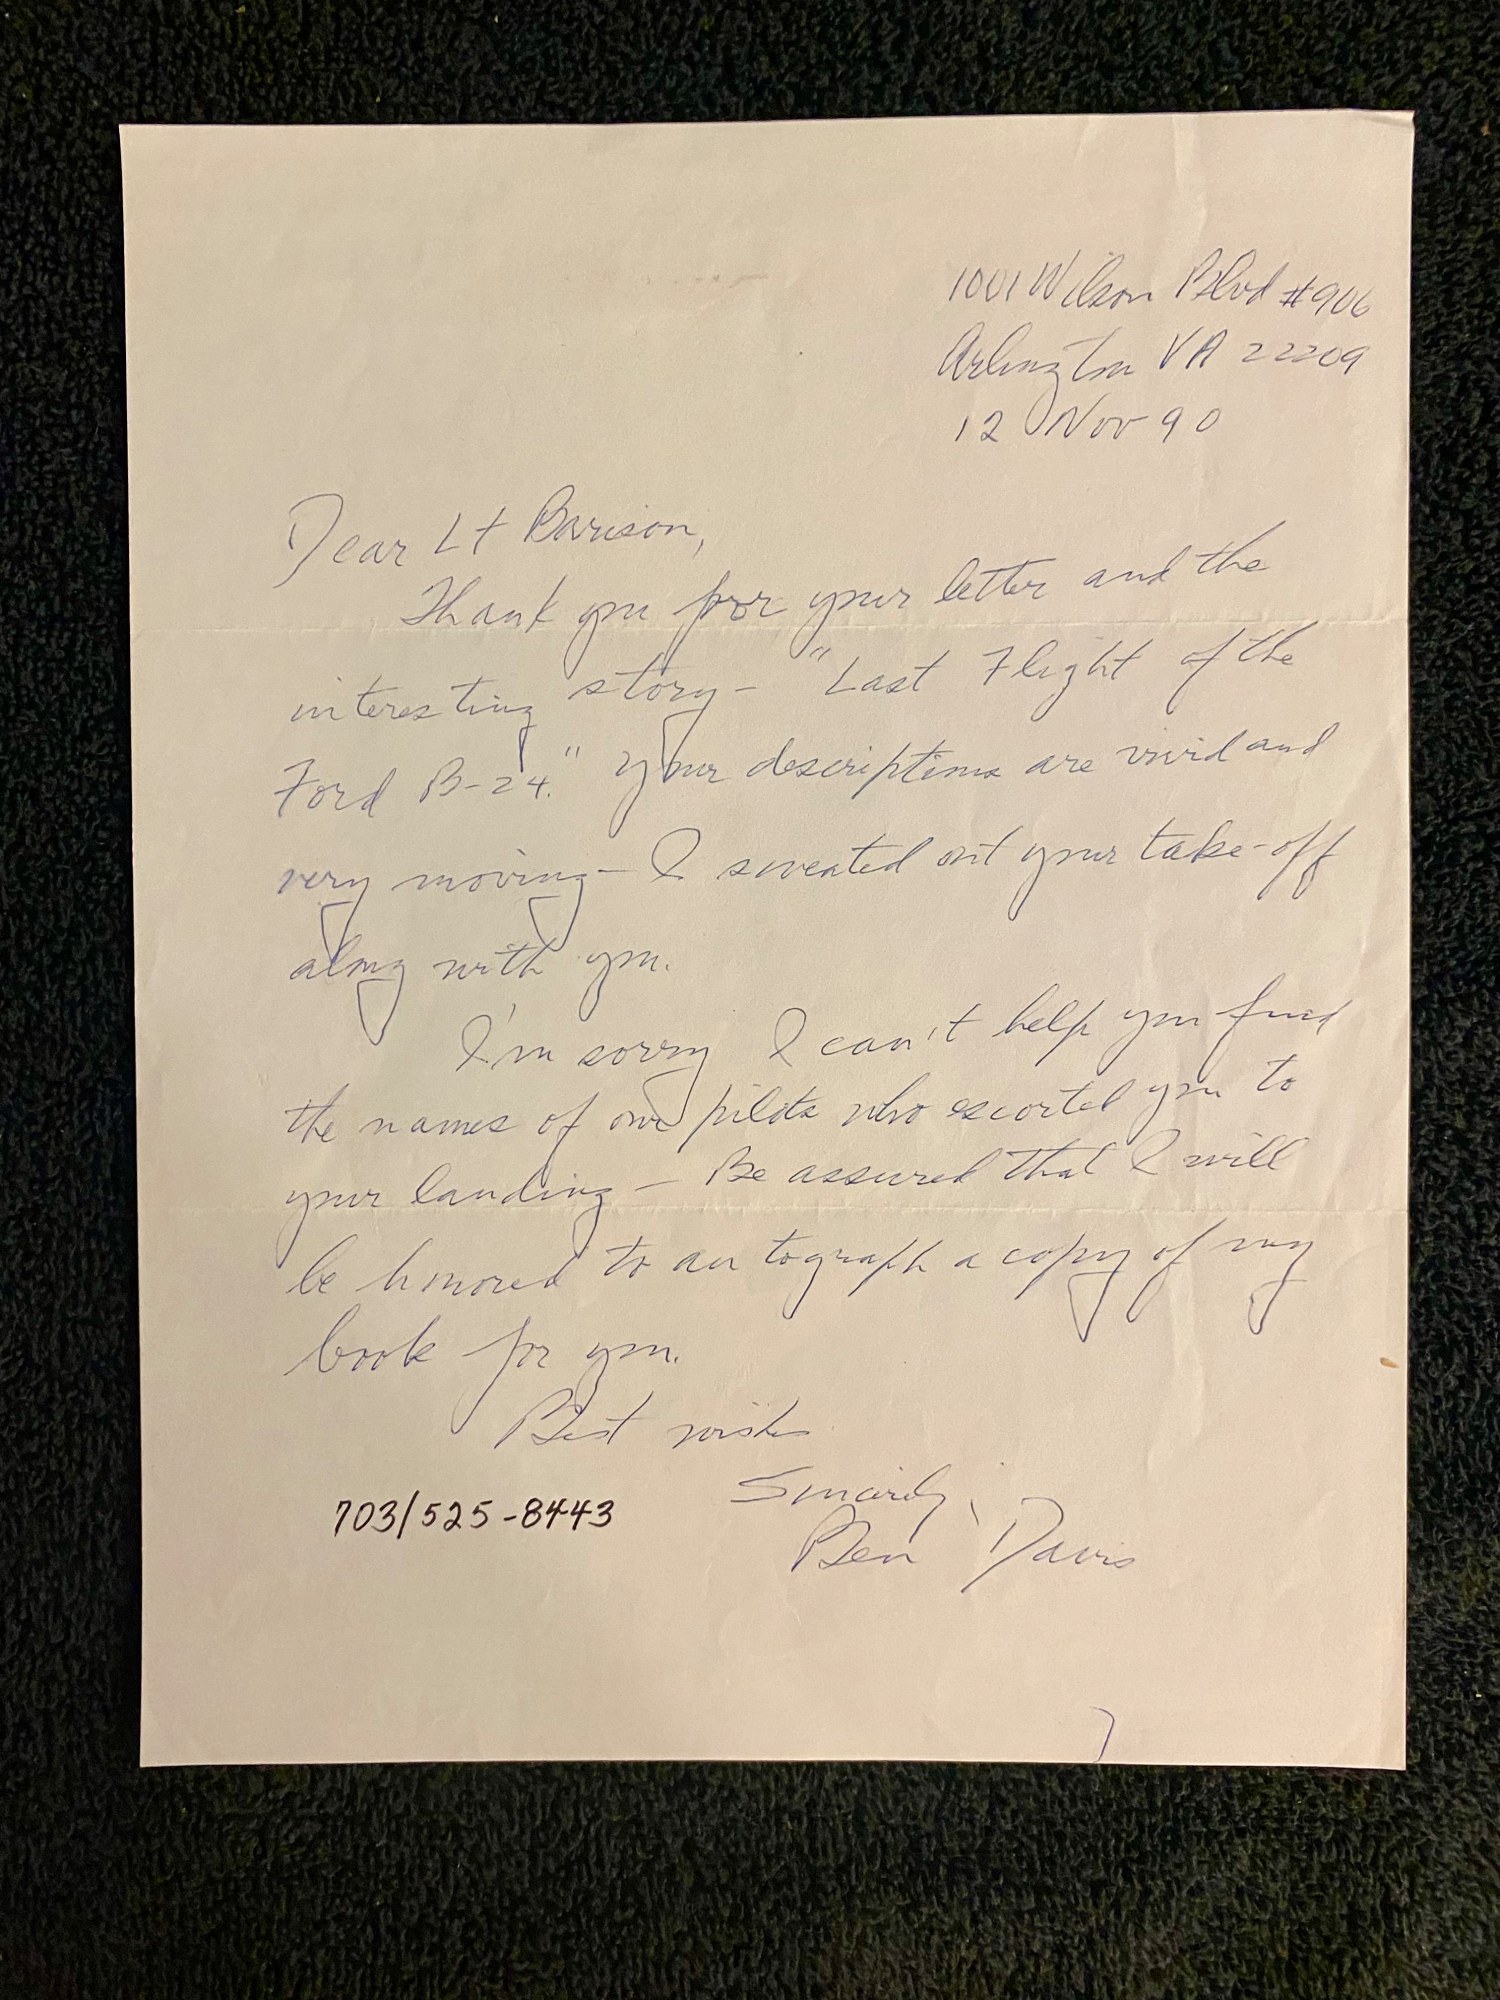 1001 Wilson Blvd #906
Arlington VA 22209
12 Nov 90
Dear Lt Barison,
Thank you for your letter and the
interesting story - "Last Flight of the
Ford B-24." Your descriptions are vivid and
very moving - I sweated out your take-off
along with you.
I'm sorry I can't help you find
the names of our pilots who escorted you to
your landing - Be assured that I will
be honored to autograph a copy of my
book for you.
Best wishes
Sincerely,
703/525-8443
Ben Davis